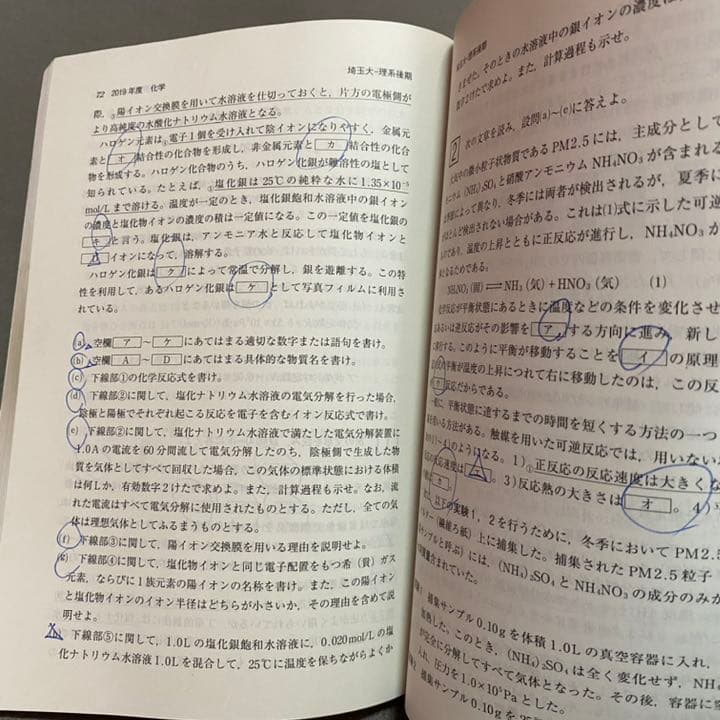 72 2019年度 化学
埼玉大-理系後期
③陽イオン交換膜を用いて水溶液を仕切っておくと，片方の電極側が
より高純度の水酸化ナトリウム水溶液となる。
ハロゲン元素は④電子1個を受け入れて陰イオンになりやすく，金属元
素と オ 結合性の化合物を形成し，非金属元素と カ 結合性の化合
物を形成する。ハロゲン化合物のうち，ハロゲン化銀が難溶性の塩として
知られている。たとえば，⑤塩化銀は25℃の純粋な水に1.35×10⁻⁵
mol/Lまで溶ける。温度が一定のとき，塩化銀飽和水溶液中の銀イオン
の濃度と塩化物イオンの濃度の積は一定値になる。この一定値を塩化銀の
キ と言う。塩化銀は，アンモニア水と反応して塩化物イオンと
D イオンになって，溶解する。
ハロゲン化銀は ク によって常温で分解し，銀を遊離する。この特
性を利用して，あるハロゲン化銀は ケ として写真フィルムに利用さ
れている。
(a) 空欄 ア ～ ケ にあてはまる適切な数字または語句を書け。
(b) 空欄 A ～ D にあてはまる具体的な物質名を書け。
(c) 下線部①の化学反応式を書け。
(d) 下線部②に関して，塩化ナトリウム水溶液の電気分解を行った場合，
陰極と陽極でそれぞれ起こる反応を電子を含むイオン反応式で書け。
(e) 下線部②に関して，塩化ナトリウム水溶液で満たした電気分解装置に
1.0Aの電流を60分間流して電気分解したのち，陰極側で生成した物
質を気体としてすべて回収した場合，この気体の標準状態における体積
は何Lか，有効数字2けたで求めよ。また，計算過程も示せ。なお，流
れた電流はすべて電気分解に使用されたものとする。ただし，全ての気
体は理想気体としてふるまうものとする。
(f) 下線部③に関して，陽イオン交換膜を用いる理由を説明せよ。
(g) 下線部④に関して，塩化物イオンと同じ電子配置をもつ希（貴）ガス
元素，ならびに1族元素の陽イオンの名称を書け。また，この陽イオン
と塩化物イオンのイオン半径はどちらが小さいか，その理由を含めて説
明せよ。
下線部⑤に関して，1.0Lの塩化銀飽和水溶液に，0.020mol/Lの塩
化ナトリウム水溶液1.0Lを混合して，25℃に温度を保ちながらよくか
埼玉大-理系後期
きまぜた。そのときの水溶液中の銀イオンの濃度は
けたで求めよ。また，計算過程も示せ。
2 次の文章を読み，設問(a)～(e)に答えよ。
大気中の微小粒子状物質であるPM2.5には，主成分として
ニウム(NH₄)₂SO₄と硝酸アンモニウムNH₄NO₃が含まれる
によって異なり，冬季には両者が検出されるが，夏季に
とんど検出されない場合がある。これは(1)式に示した可逆
であり，温度の上昇とともに正反応が進行し，NH₄NO₃が
となるためである。
NH₄NO₃(固)⇌NH₃(気)+HNO₃(気) (1)
化学反応が平衡状態にあるときに温度などの条件を変化させ
あるいは逆反応がその影響を ア する方向に進み，新し
に移行する。このように平衡が移動することを イ の原理
の平衡が温度の上昇につれて右に移動したのは，この反
反応だからである。
一般に，平衡状態に達するまでの時間を短くする方法の一つ
を用いる方法がある。触媒を用いた可逆反応では，用いない
1)～4)のようになる。1)①正反応の反応速度は大きくな
反応速度は 。3)反応熱の大きさは オ 。4)
以下の実験1，2を行うために，冬季においてPM2.5
(繊維ろ紙)上に捕集した。捕集されたPM2.5粒子
サンプルと呼ぶ)には，(NH₄)₂SO₄とNH₄NO₃の成分のみが
含まれていた。
捕集サンプル0.10gを体積1.0Lの真空容器に入れ，
加熱した。このとき，(NH₄)₂SO₄は全く変化せず，NH₄
が完全に分解してすべて気体となった。その後，容器に
入れ，圧力を1.0×10⁵Paとした。
捕集サンプル0.10gを25